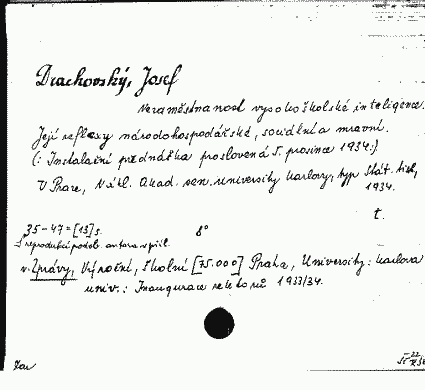 Drachovský, Josef
Nezaměstnanost vysokoškolské inteligence.
Její reflexy národohospodářské, sociální a mravní.
(: Instalační přednáška proslovená 5. prosince 1934:)
V Praze, Nákl. Akad. sen. university Karlovy, typ Stát. tisk,
1934.
t.
35-47=[13] s. 8°
S reprodukcí podob. autora v příl.
v. Zprávy, Výroční, školní [75.000] Praha, University: Karlova
univ.: Inaugurace rektorů 1933/34.